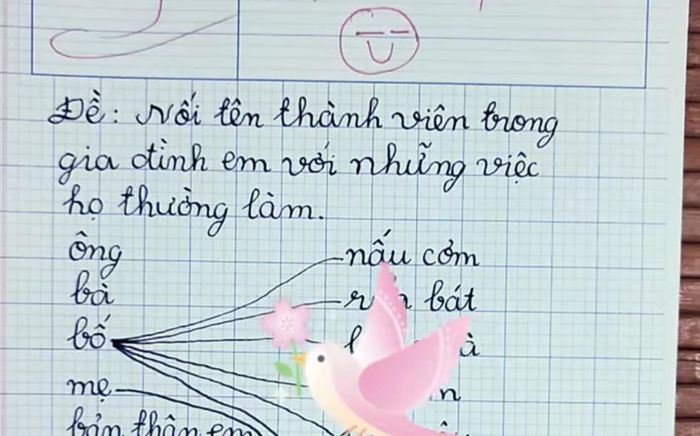 Đề: Nối tên thành viên trong
gia đình em với những việc
họ thường làm.
ông
nấu cơm
bà
bát
bố
mẹ
bản thân em